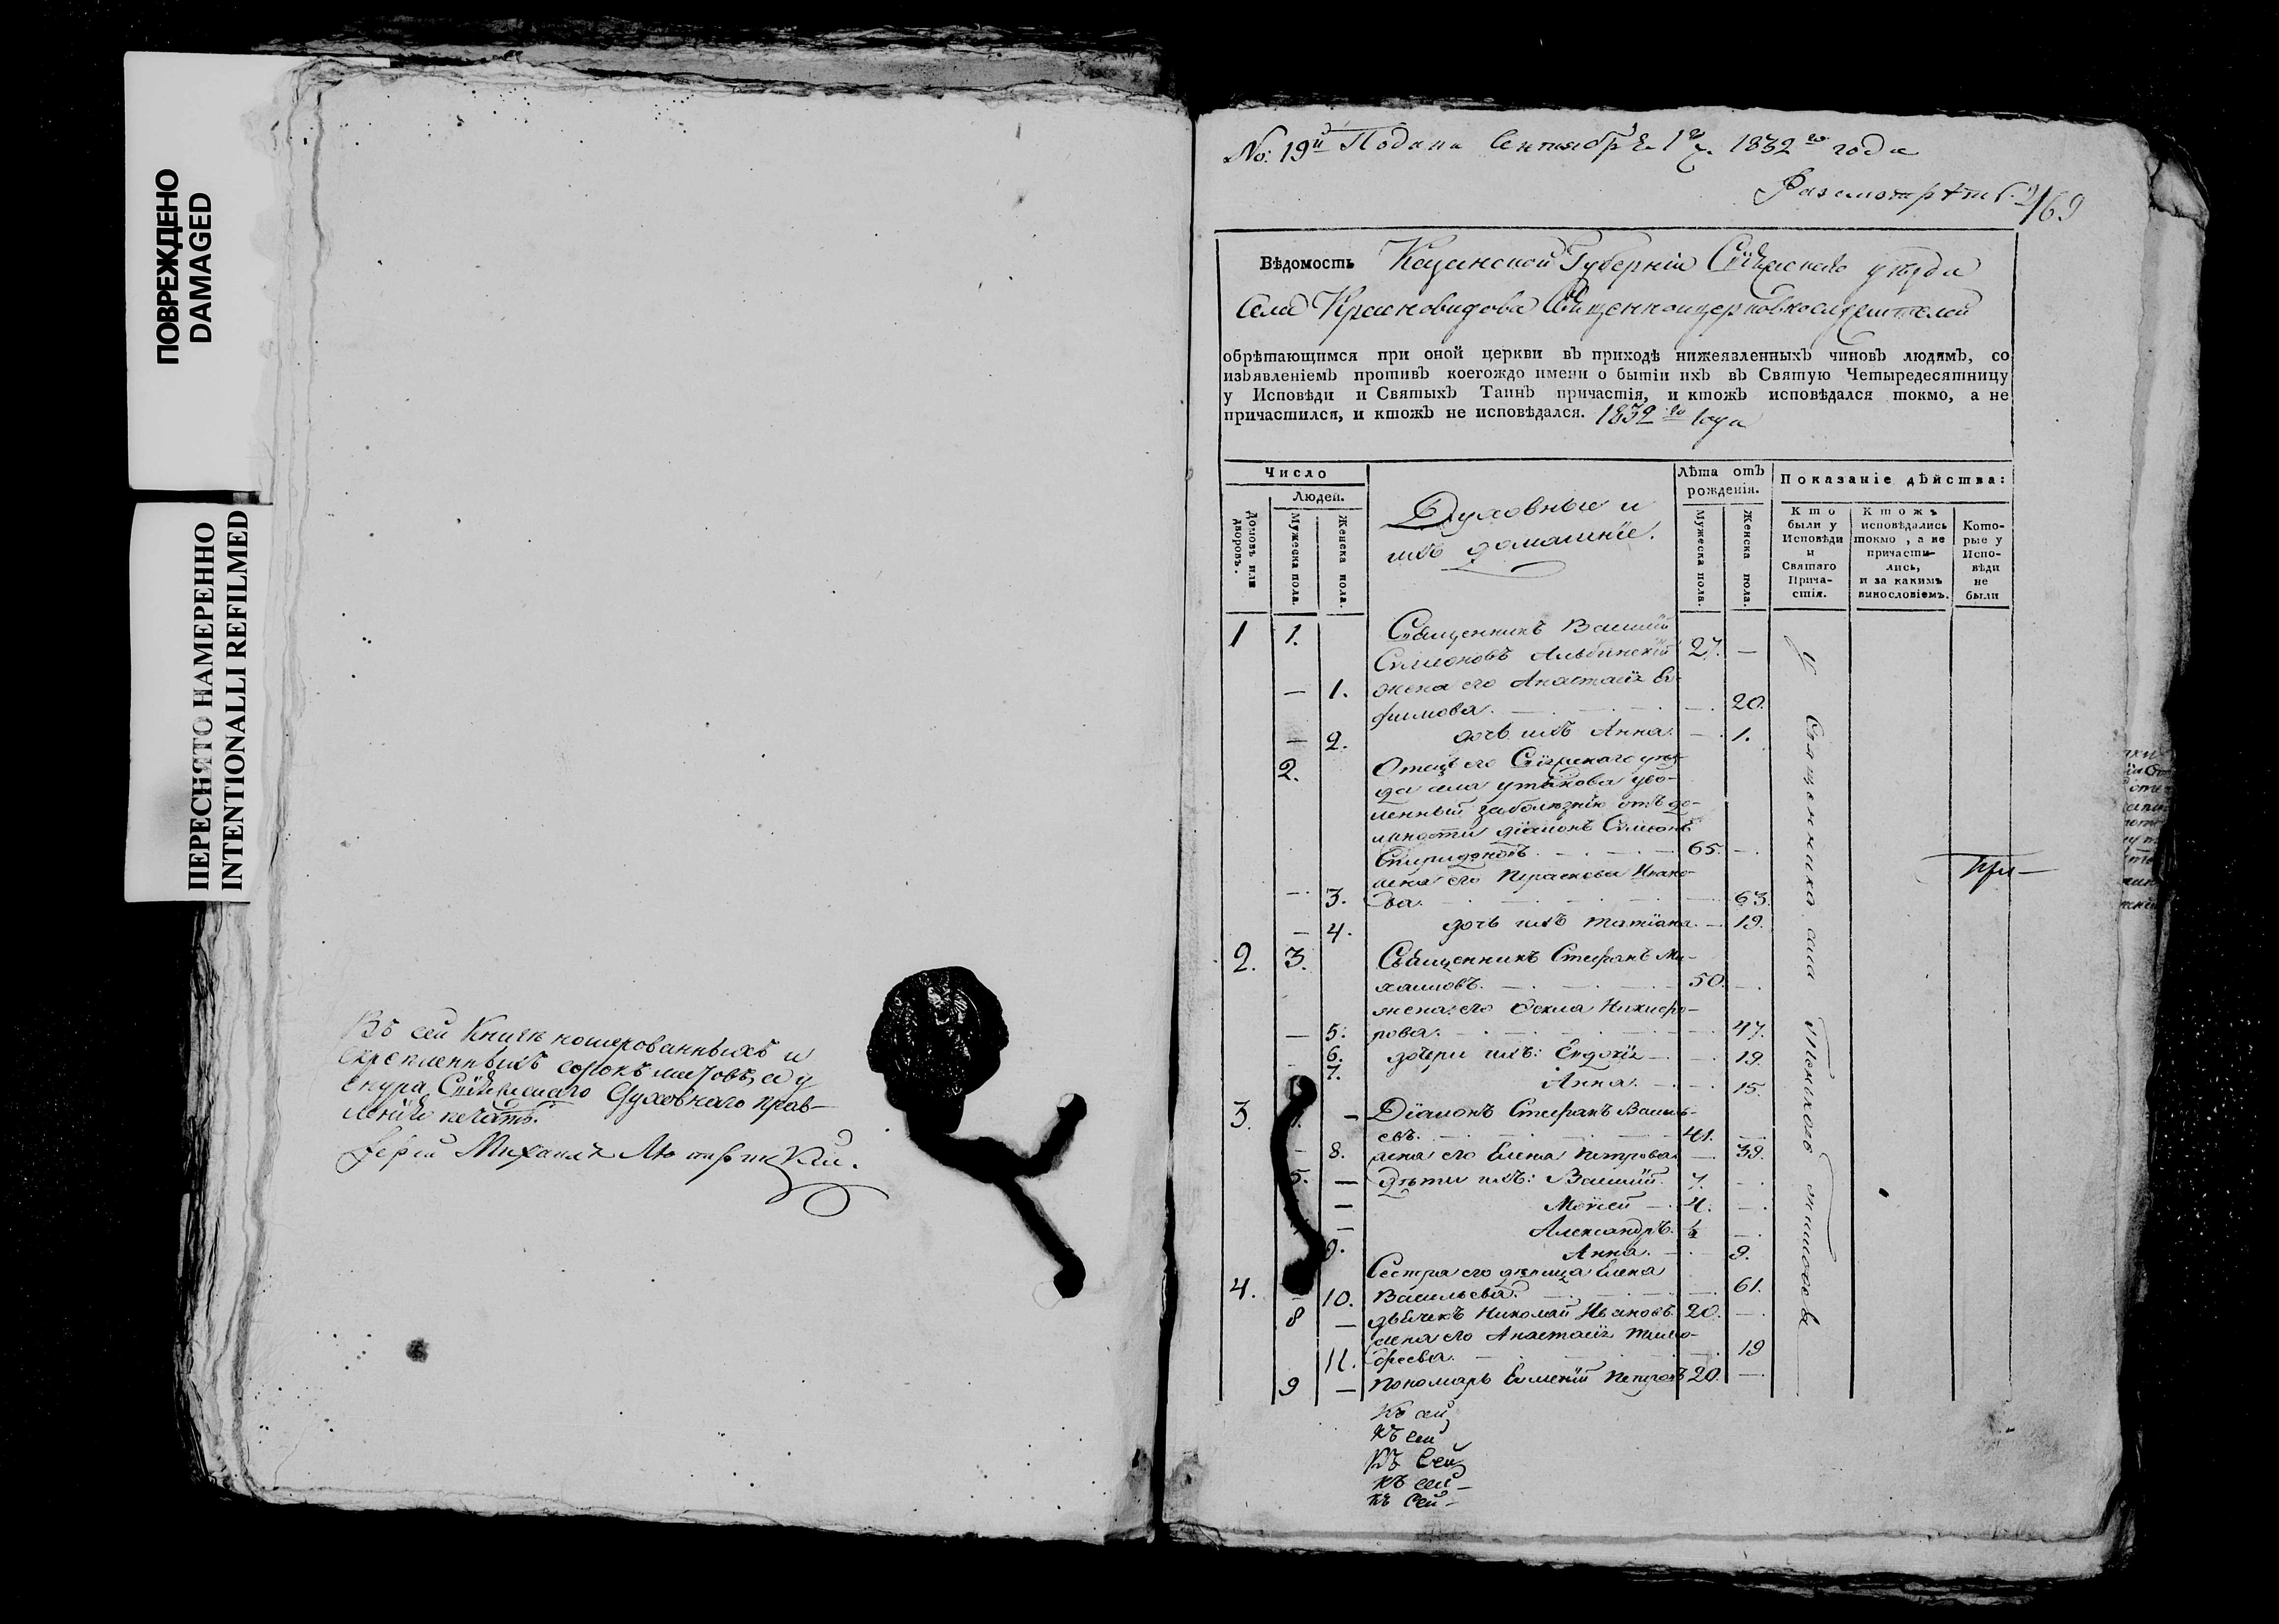 ПОВРЕЖДЕНО
DAMAGED
ПЕРЕСНЯТО НАМЕРЕННО
INTENTIONALLI REFILMED
Въ сей Книгѣ номерованныхъ и
скрепленныхъ сорокъ листовъ, и у
снура Свіяжскаго Духовнаго Прав-
ленія печать.
Іерей Михаилъ
No: 19й Подана Сентября 1832го года
69
Вѣдомость Казанской Губерніи Свіяжскаго уѣзда
Села Красновидова Священноцерковнослужителей
обрѣтающимся при оной церкви въ приходѣ нижеявленныхъ чиновъ людямъ, со
изъявленіемъ противъ коегождо имени о бытіи ихъ въ Святую Четыредесятницу
у Исповѣди и Святыхъ Таинъ причастія, и ктожъ исповѣдался токмо, а не
причастился, и ктожъ не исповѣдался. 1832го года
Число
Людей.
Домовъ или дворовъ.
Мужеска пола.
Женска пола.
Духовные и
ихъ домашніе.
Лѣта отъ
рожденія.
Мужеска пола.
Женска пола.
Показаніе дѣйства:
Кто
были у
Исповѣди
и
Святаго
Прича-
стія.
Ктожъ
исповѣдались
токмо, а не
причасти-
лись,
и за какимъ
винословіемъ.
Кото-
рые у
Испо-
вѣди
не
были
1 1. Священникъ Василій
Симеоновъ Альбинскій 27. —
— 1. жена его Анастасія Ев-
фимова. — 20.
— 2. дочь ихъ Анна. — 1.
2. Отецъ его Свіяжскаго уѣз-
да села Утякова уво-
ленный за болѣзнію отъ до-
лжности діаконъ Симеонъ
Спиридоновъ 65. —
— 3. жена его Параскева Ивано-
ва. — 63.
— 4. дочь ихъ Татіана. — 19.
2. 3. Священникъ Стефанъ Ми-
хаиловъ. 50. —
жена его Фекла Никифо-
— 5. рова. — 47.
— 6. дочери ихъ: Евдокія — 19.
7. Анна. — 15.
3. — Діаконъ Стефанъ Василь-
евъ. 41. —
— 8. жена его Елена Петрова — 39.
5. — дѣти ихъ: Василій. 7. —
— Моисей — 4. —
— Александръ. —
9. Анна. — 9.
Сестра его дѣвица Елена
4. — 10. Васильева. — 61.
8 — дьячекъ Николай Ивановъ. 20. —
жена его Анастасія Тимо-
11. феева. — 19
9 — Пономарь Евгеній Петровъ 20. —
У Священника села Теньковъ
При—
Къ сей
Къ сей
Къ Сей
Къ сей—
Къ Сей—